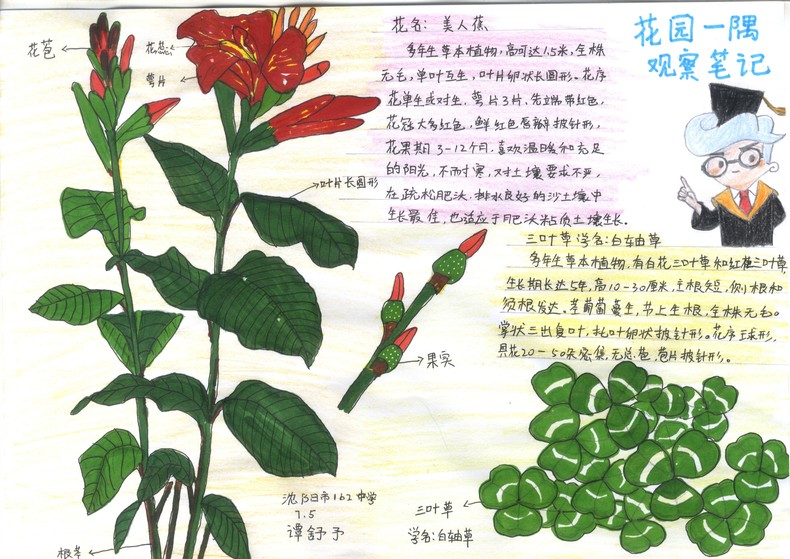 花园一隅
观察笔记
花名：美人蕉
多年生草本植物，高可达1.5米，全株
无毛，单叶互生，叶片卵状长圆形。花序
花单生或对生，萼片3片，先端带红色，
花冠大多红色，鲜红色唇瓣披针形，
花果期3-12个月，喜欢温暖和充足
的阳光，不耐寒，对土壤要求不严，
在疏松肥沃、排水良好的沙土壤中
生长最佳，也适应于肥沃粘质土壤生长。
三叶草 学名：白轴草
多年生草本植物，有白花三叶草和红花三叶草，
生长期长达5年，高10-30厘米，主根短，侧根和
须根发达。茎匍匐蔓生，节上生根，全株无毛。
掌状三出复叶，托叶卵状披针形。花序球形，
具花20-50朵密集，无总苞，苞片披针形。
花苞
花蕊
萼片
叶片长圆形
果实
根茎
三叶草
学名：白轴草
沈阳市162中学
7.5
谭舒予